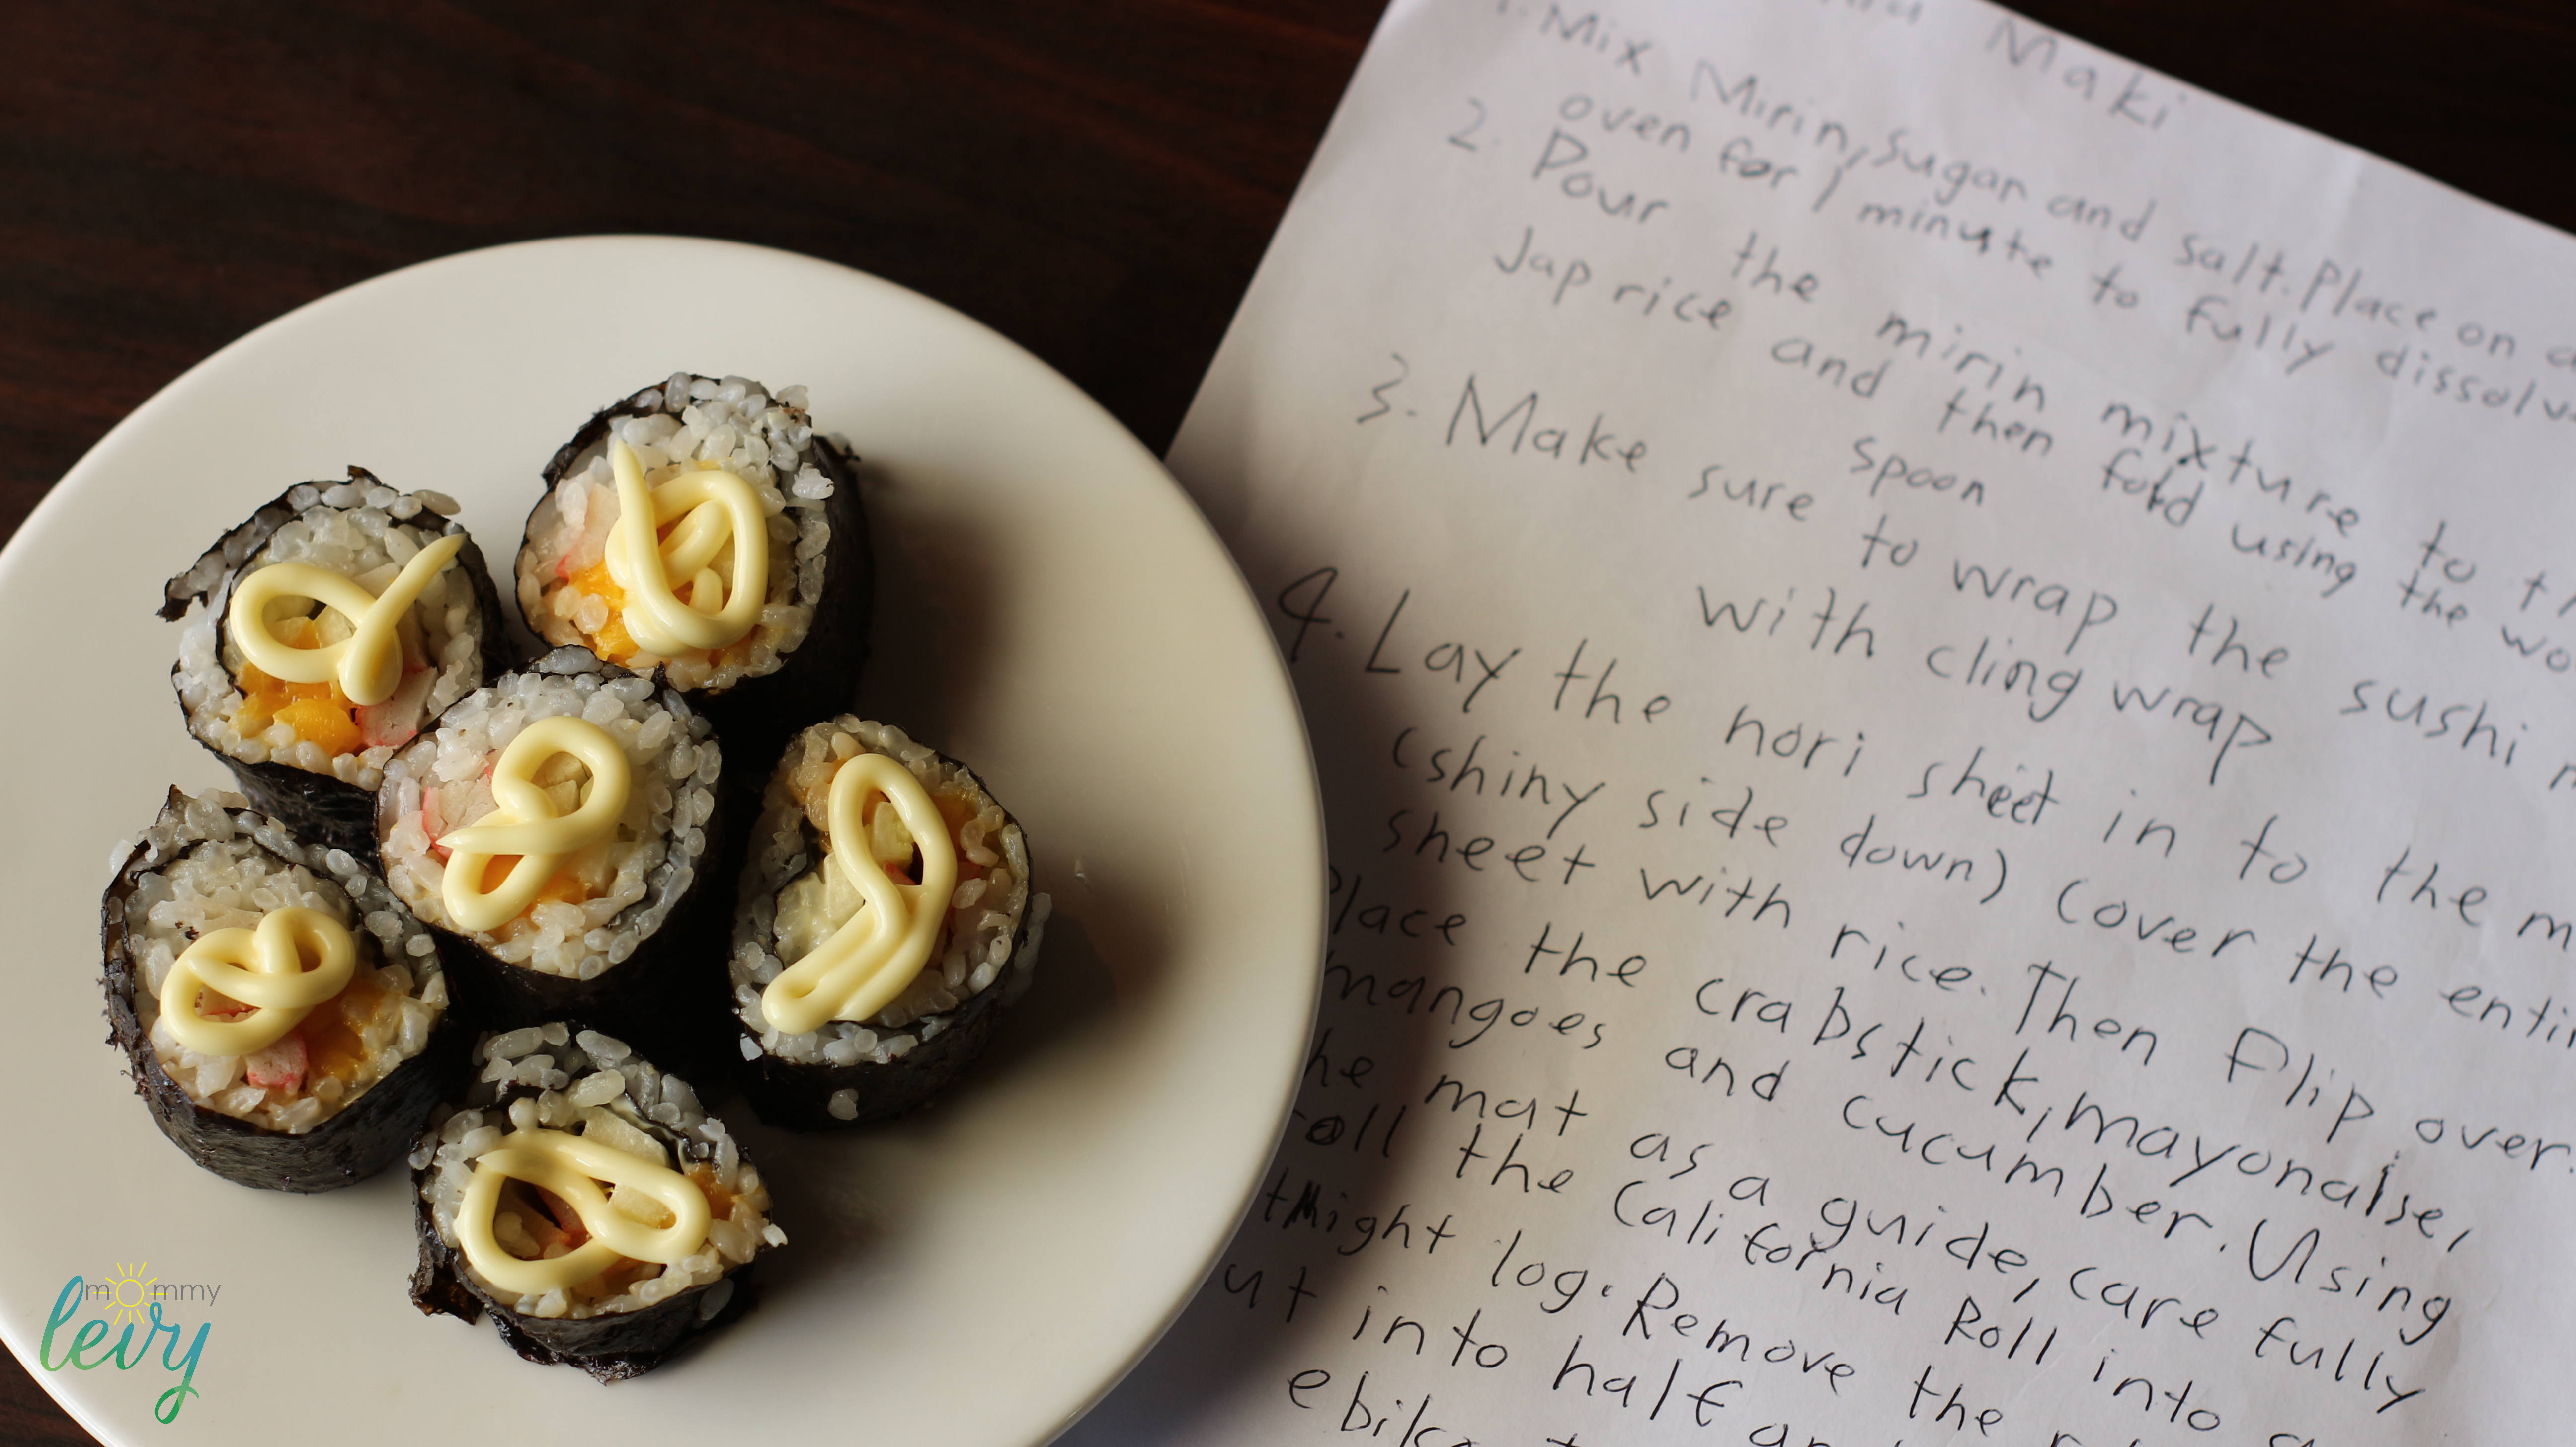 Maki
1. Mix Mirin, sugar and salt. Place on
oven for 1 minute to fully
2. Pour the mirin mixture to
Jap rice and then fold using the
spoon
3. Make sure to wrap the sushi
with cling wrap
4. Lay the nori sheet in to the
(shiny side down) Cover the
sheet with rice. Then Flip over.
Place the crabstick, mayonaise,
mangoes and cucumber. Using
the mat as a guide, care fully
roll the California Roll into
thight log. Remove the
into half
mommy
levy